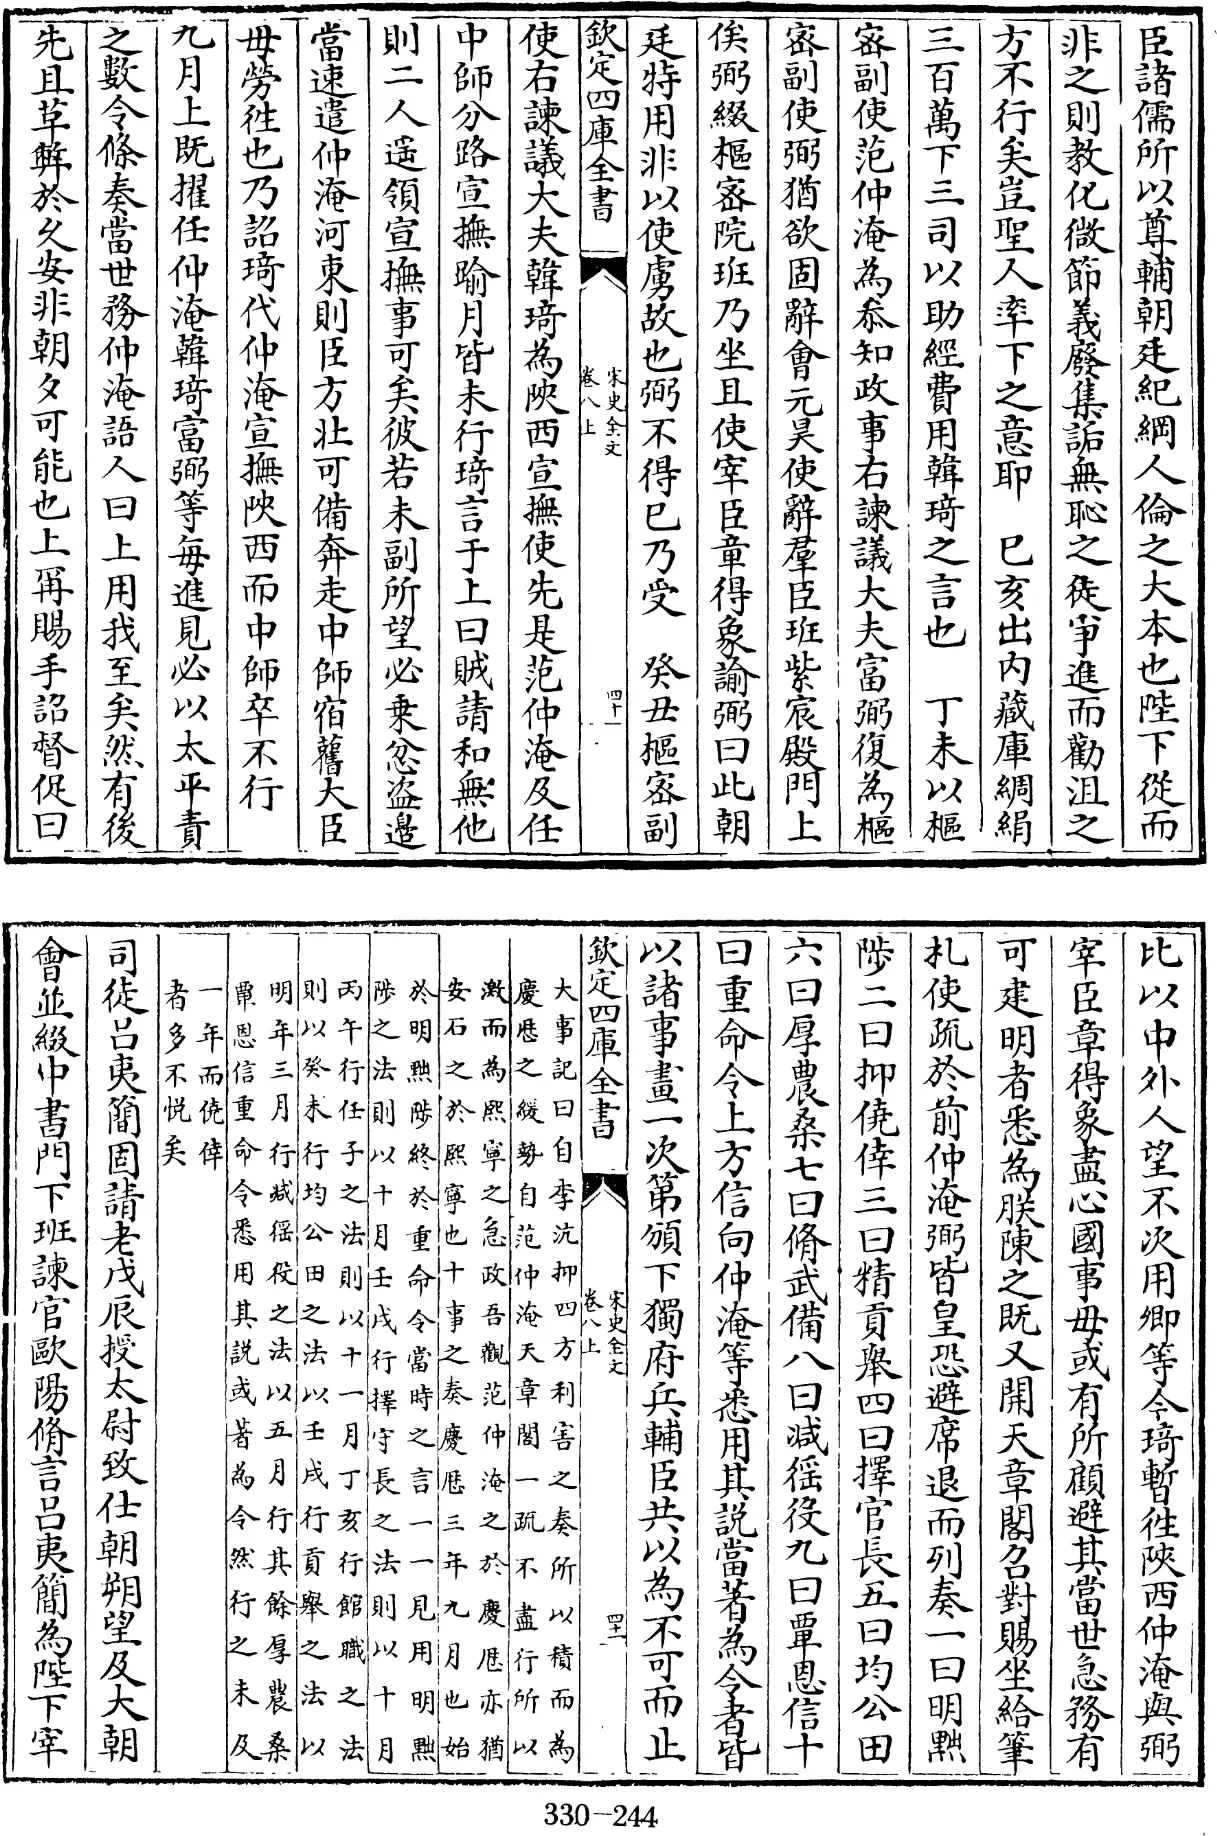 臣諸儒所以尊輔朝廷紀綱人倫之大本也陛下從而
非之則教化微節義廢集詬無恥之徒爭進而勸沮之
方不行矣豈聖人率下之意耶　巳亥出内藏庫綢絹
三百萬下三司以助經費用韓琦之言也　丁未以樞
密副使范仲淹為叅知政事右諫議大夫富弼復為樞
密副使弼猶欲固辭會元昊使辭羣臣班紫宸殿門上
俟弼綴樞密院班乃坐且使宰臣章得象諭弼曰此朝
廷特用非以使虜故也弼不得已乃受　癸丑樞密副
欽定四庫全書
宋史全文
卷八上
四十一
使右諫議大夫韓琦為陝西宣撫使先是范仲淹及任
中師分路宣撫踰月皆未行琦言于上曰賊請和無他
則二人遥領宣撫事可矣彼若未副所望必乗忿盗邊
當速遣仲淹河東則臣方壯可備奔走中師宿舊大臣
毋勞徃也乃詔琦代仲淹宣撫陜西而中師卒不行
九月上既擢任仲淹韓琦富弼等每進見必以太平責
之數令條奏當世務仲淹語人曰上用我至矣然有後
先且革弊於久安非朝夕可能也上再賜手詔督促曰
比以中外人望不次用卿等今琦暫徃陜西仲淹與弼
宰臣章得象盡心國事毋或有所顧避其當世急務有
可建明者悉為朕陳之既又開天章閣召對賜坐給筆
札使疏於前仲淹弼皆皇恐避席退而列奏一曰明黜
陟二曰抑僥倖三曰精貢舉四曰擇官長五曰均公田
六曰厚農桑七曰脩武備八曰減徭役九曰覃恩信十
曰重命令上方信向仲淹等悉用其説當著為令者皆
以諸事畫一次第頒下獨府兵輔臣共以為不可而止
欽定四庫全書
宋史全文
卷八上
四十二
大事記曰自李沆抑四方利害之奏所以積而為
慶厯之緩勢自范仲淹天章閣一疏不盡行所以
激而為熈寧之急政吾觀范仲淹之於慶厯亦猶
安石之於熈寧也十事之奏慶厯三年九月也始
於明黜陟終於重命令當時之言一一見用明黜
陟之法則以十月壬戌行擇守長之法則以十月
丙午行任子之法則以十一月丁亥行館職之法
則以癸未行均公田之法以壬戌行貢舉之法以
明年三月行減徭役之法以五月行其餘厚農桑
覃恩信重命令悉用其説或著為令然行之未及
一年而僥倖
者多不悦矣
司徒吕夷簡固請老戊辰授太尉致仕朝朔望及大朝
會並綴中書門下班諫官歐陽脩言吕夷簡為陛下宰
330-244